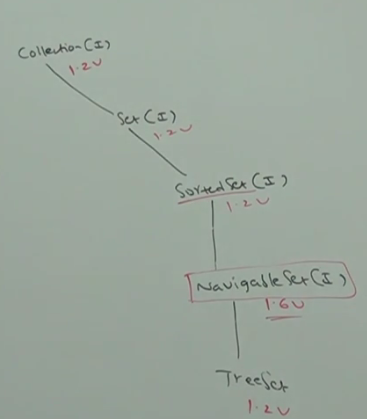 Collection(I)
1.2v
Set(I)
1.2v
SortedSet(I)
1.2v
NavigableSet(I)
1.6v
TreeSet
1.2v